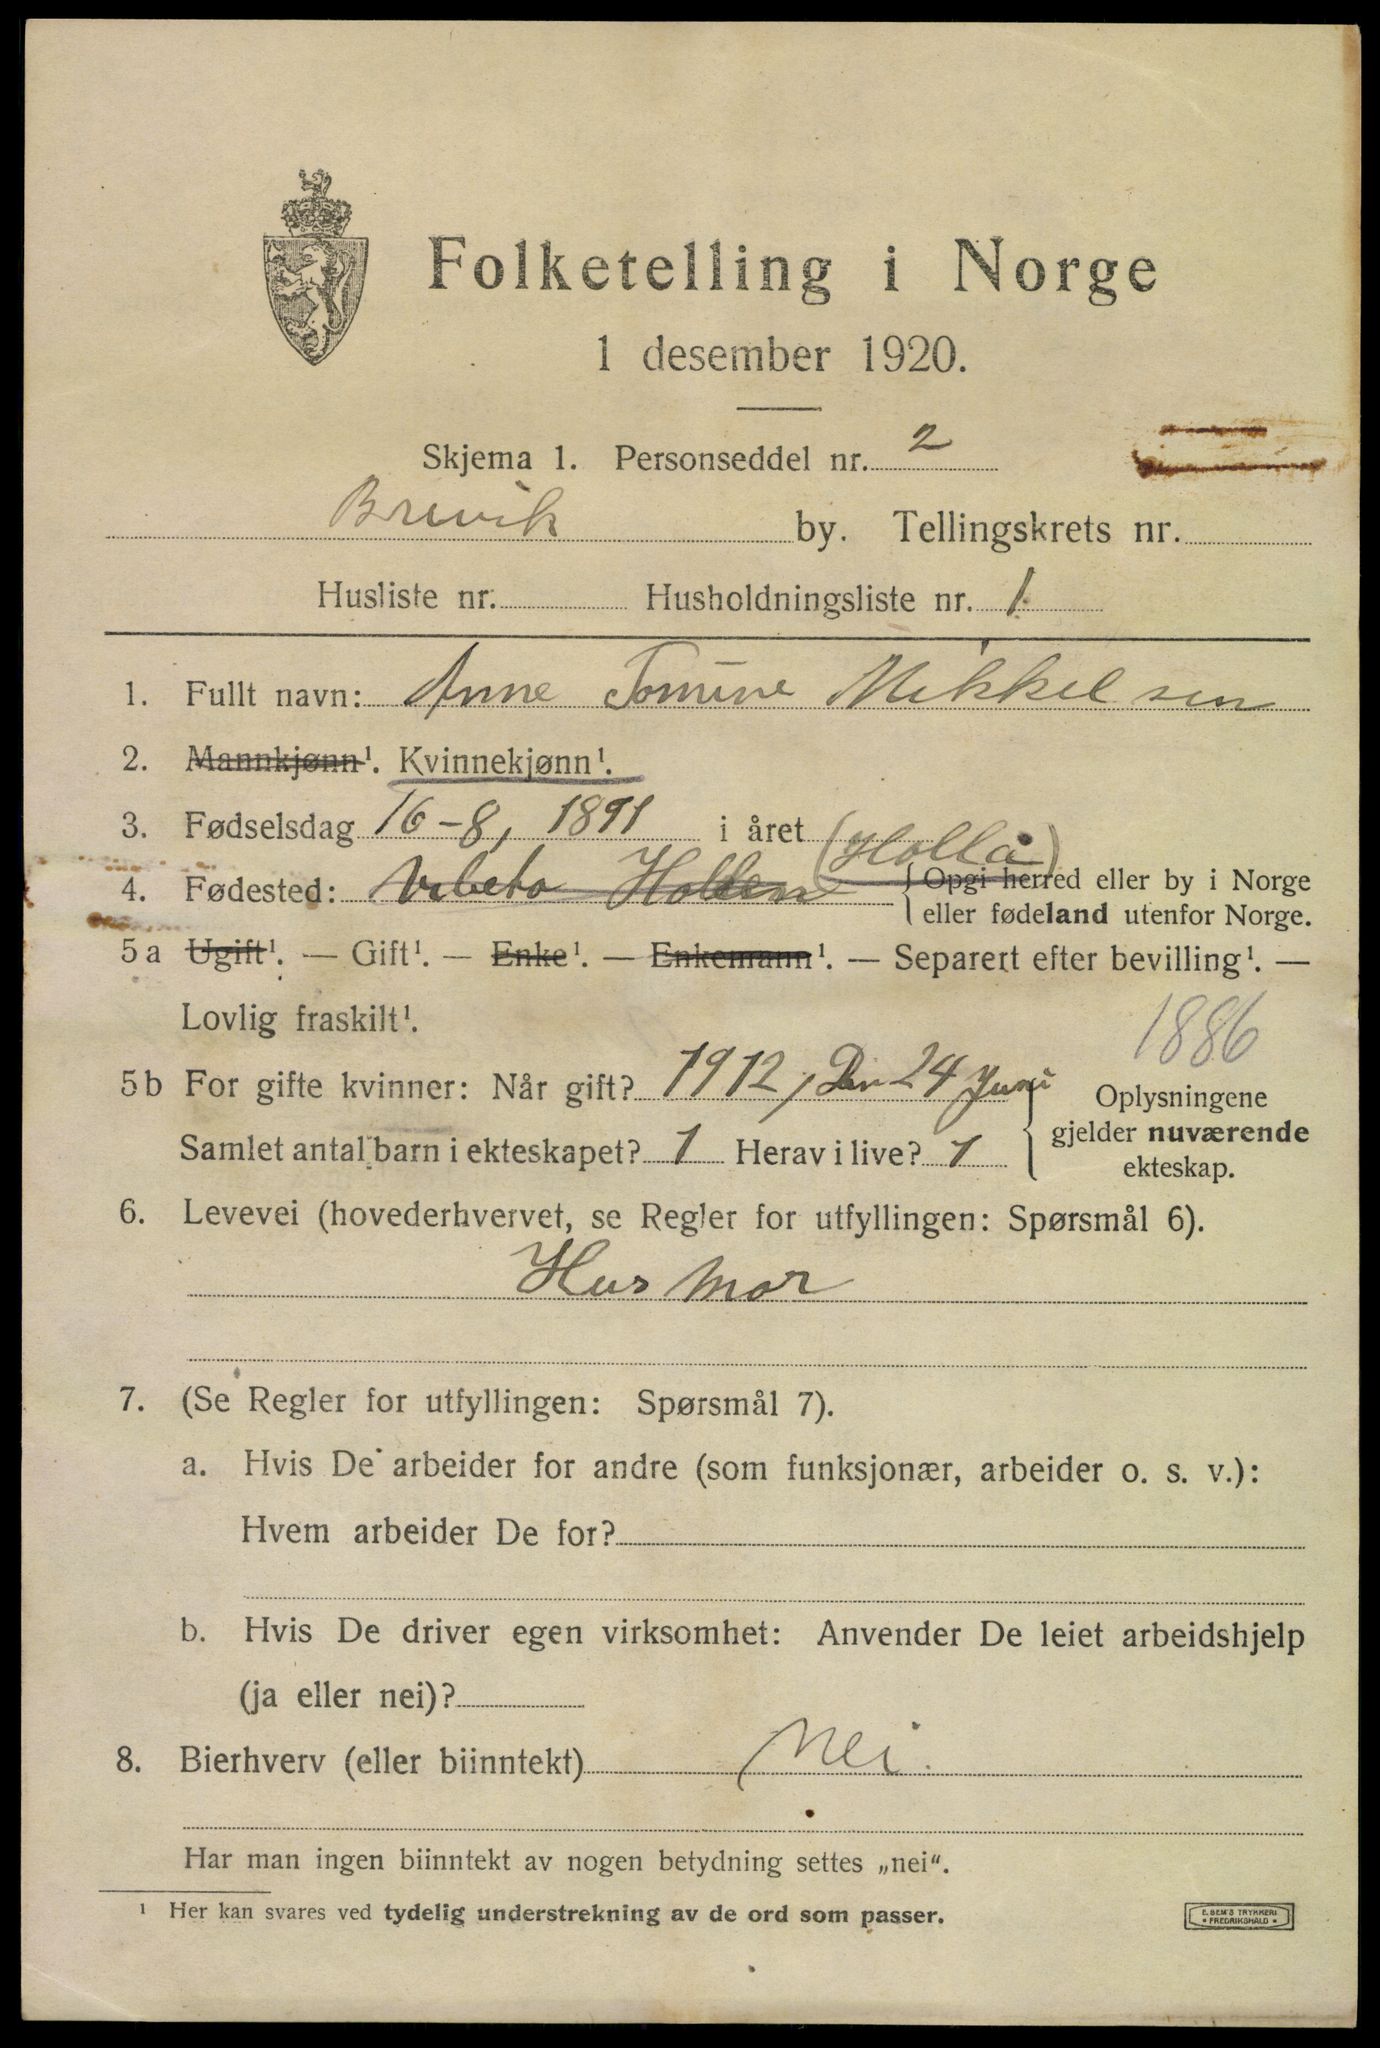 Folketelling i Norge
1 desember 1920.
Skjema 1. Personseddel nr. 2
Brevik by. Tellingskrets nr.
Husliste nr. Husholdningsliste nr. 1
1. Fullt navn: Anne Tomine Mikkelsen
2. Mannkjønn¹. Kvinnekjønn¹.
3. Fødselsdag 16-8, 1891 i året
(Holla)
4. Fødested: Hollen { Opgi herred eller by i Norge
eller fødeland utenfor Norge.
5 a Ugift¹. — Gift¹. — Enke¹. — Enkemann¹. — Separert efter bevilling¹. —
Lovlig fraskilt¹.
1886
5 b For gifte kvinner: Når gift? 1912, Den 24 Juni
Samlet antal barn i ekteskapet? 1 Herav i live? 1
Oplysningene
gjelder nuværende
ekteskap.
6. Levevei (hovederhvervet, se Regler for utfyllingen: Spørsmål 6).
Hus Mor
7. (Se Regler for utfyllingen: Spørsmål 7).
a. Hvis De arbeider for andre (som funksjonær, arbeider o. s. v.):
Hvem arbeider De for?
b. Hvis De driver egen virksomhet: Anvender De leiet arbeidshjelp
(ja eller nei)?
8. Bierhverv (eller biinntekt) Nei.
Har man ingen biinntekt av nogen betydning settes „nei“.
¹ Her kan svares ved tydelig understrekning av de ord som passer.
E. SEM'S TRYKKERI
FREDRIKSHALD